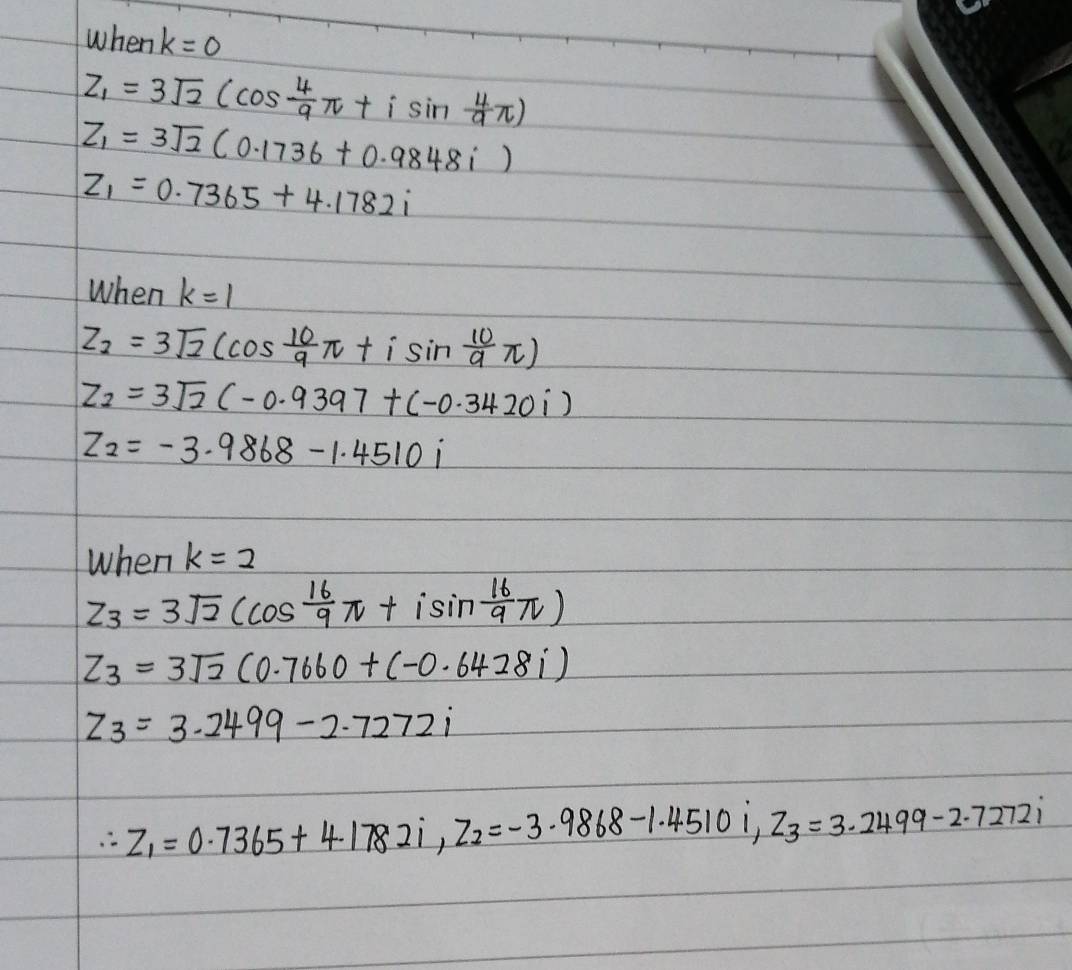 When k = 0
Z₁ = 3√2 (cos 4/9 π + i sin 4/9 π)
Z₁ = 3√2 (0.1736 + 0.9848i)
Z₁ = 0.7365 + 4.1782i
When k = 1
Z₂ = 3√2 (cos 10/9 π + i sin 10/9 π)
Z₂ = 3√2 (-0.9397 + (-0.3420i)
Z₂ = -3.9868 - 1.4510i
When k = 2
Z₃ = 3√2 (cos 16/9 π + i sin 16/9 π)
Z₃ = 3√2 (0.7660 + (-0.6428i)
Z₃ = 3.2499 - 2.7272i
∴ Z₁ = 0.7365 + 4.1782i, Z₂ = -3.9868 - 1.4510i, Z₃ = 3.2499 - 2.7272i